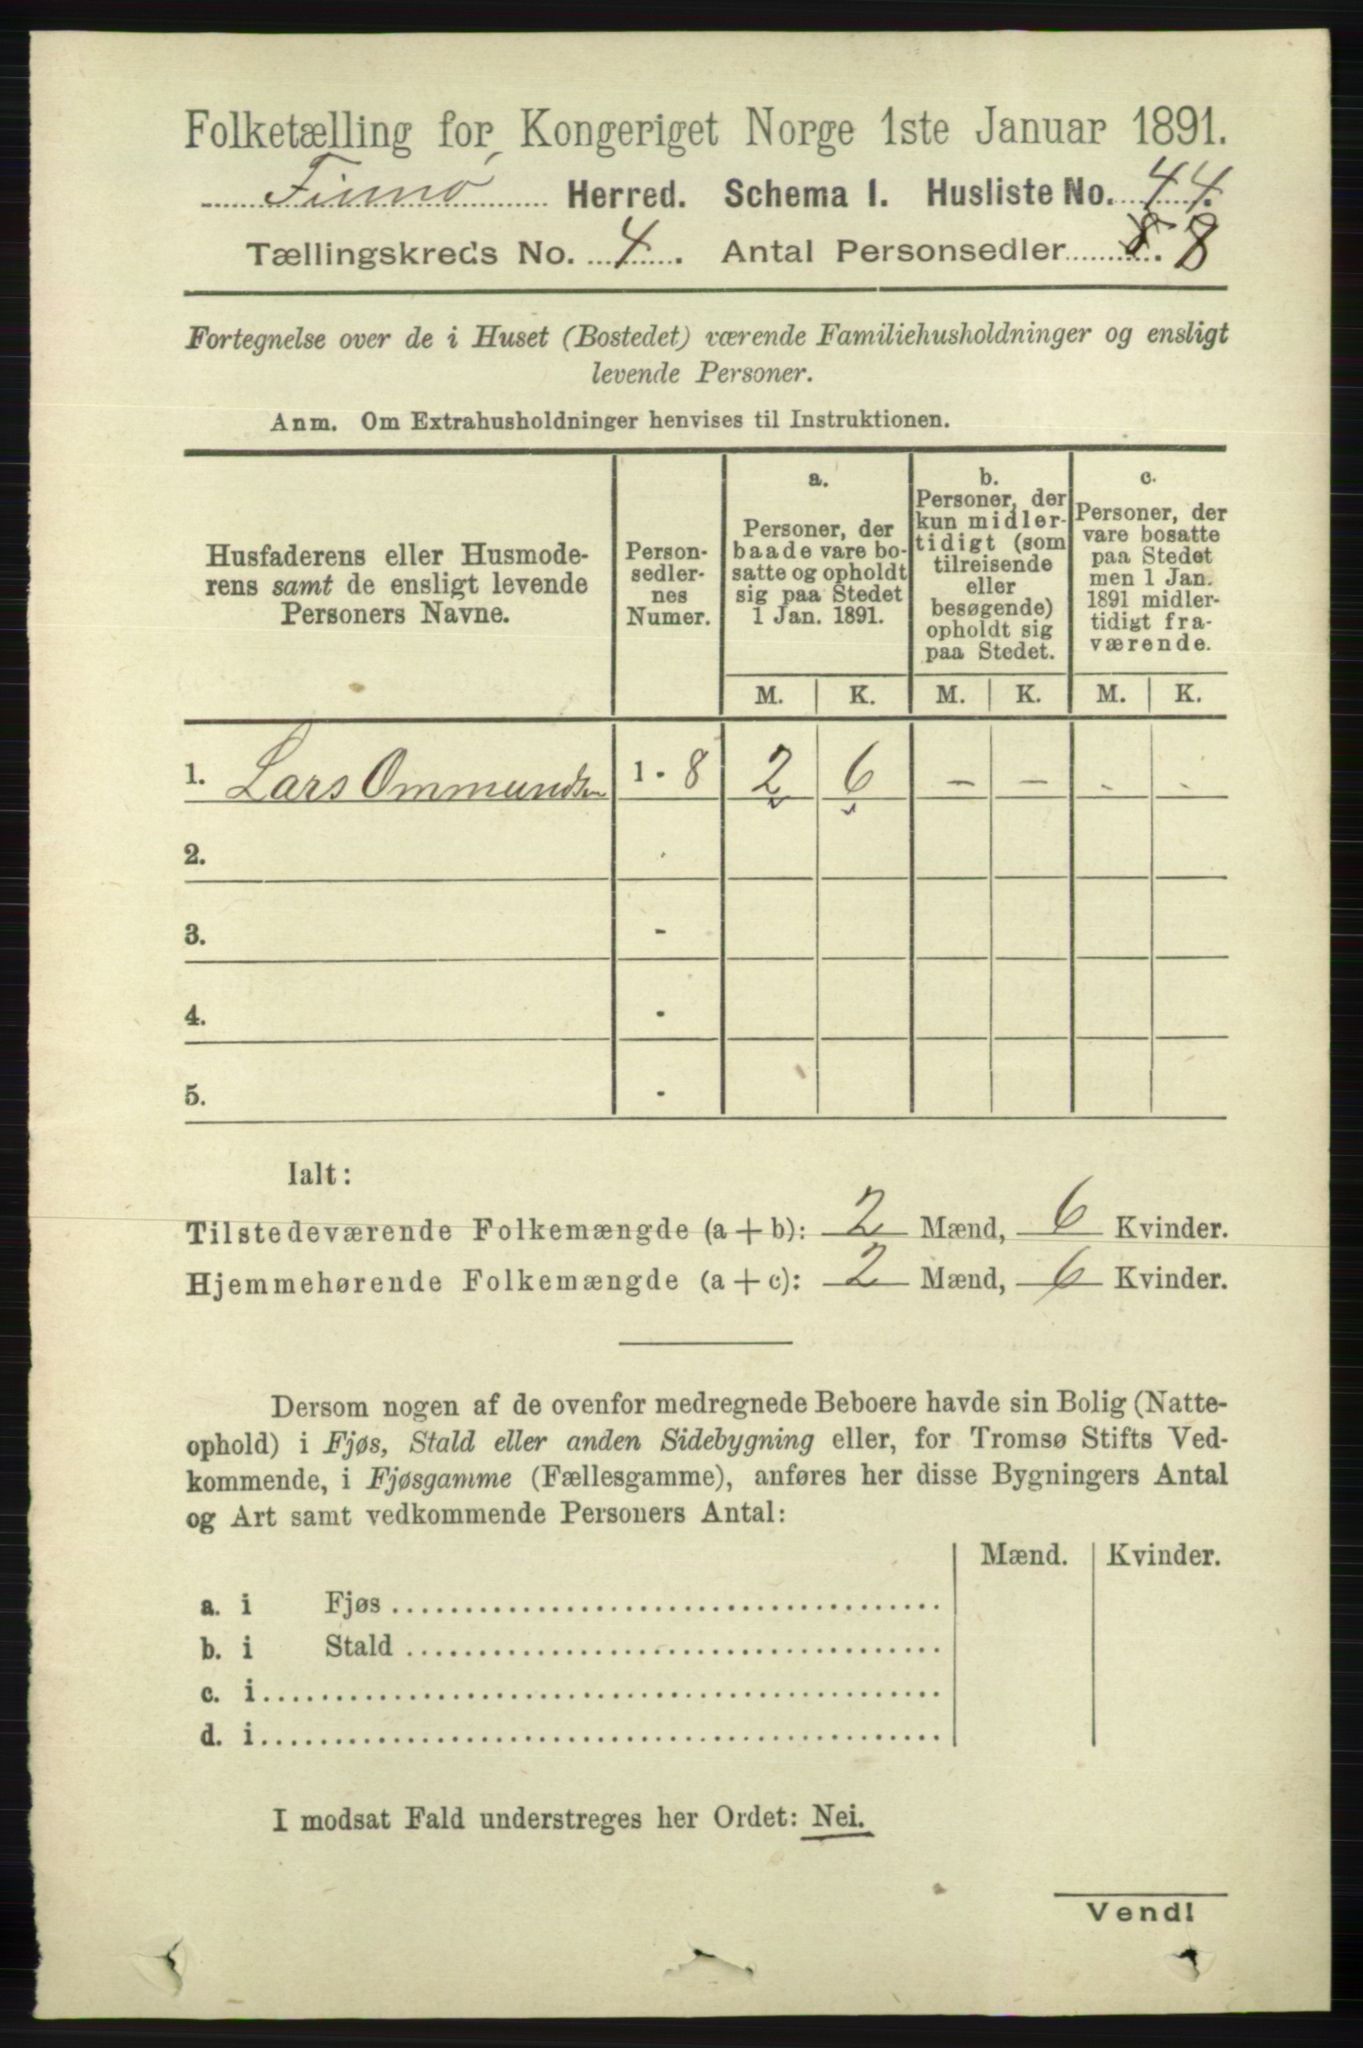 Folketælling for Kongeriget Norge 1ste Januar 1891.
Finnø Herred. Schema I. Husliste No. 44.
Tællingskreds No. 4. Antal Personsedler 8. 8
Fortegnelse over de i Huset (Bostedet) værende Familiehusholdninger og ensligt
levende Personer.
Anm. Om Extrahusholdninger henvises til Instruktionen.
Husfaderens eller Husmode-
rens samt de ensligt levende
Personers Navne.
Person-
sedler-
nes
Numer.
a.
Personer, der
baade vare bo-
satte og opholdt
sig paa Stedet
1 Jan. 1891.
b.
Personer, der
kun midler-
tidigt (som
tilreisende
eller
besøgende)
opholdt sig
paa Stedet.
c.
Personer, der
vare bosatte
paa Stedet
men 1 Jan.
1891 midler-
tidigt fra-
værende.
M. K. M. K. M. K.
1. Lars Ommundsen 1 - 8 2 6 - - - -
2. -
3. -
4. -
5. -
Ialt:
Tilstedeværende Folkemængde (a + b): 2 Mænd, 6 Kvinder.
Hjemmehørende Folkemængde (a + c): 2 Mænd, 6 Kvinder.
Dersom nogen af de ovenfor medregnede Beboere havde sin Bolig (Natte-
ophold) i Fjøs, Stald eller anden Sidebygning eller, for Tromsø Stifts Ved-
kommende, i Fjøsgamme (Fællesgamme), anføres her disse Bygningers Antal
og Art samt vedkommende Personers Antal:
Mænd. Kvinder.
a. i Fjøs
b. i Stald
c. i
d. i
I modsat Fald understreges her Ordet: Nei.
Vend!